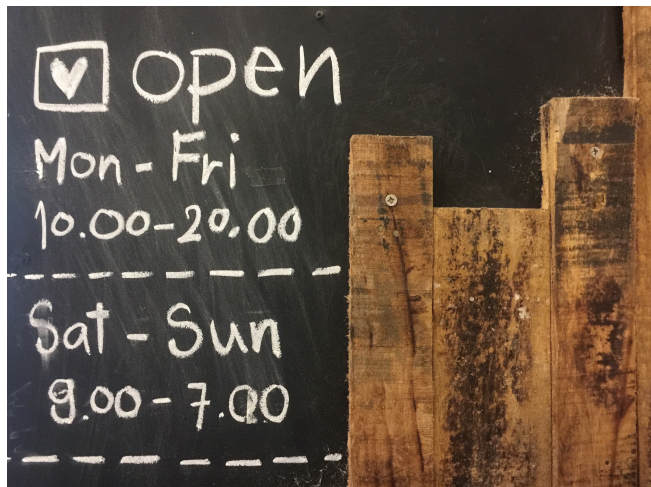 open
Mon - Fri
10.00-20.00
Sat - Sun
9.00 - 7.00